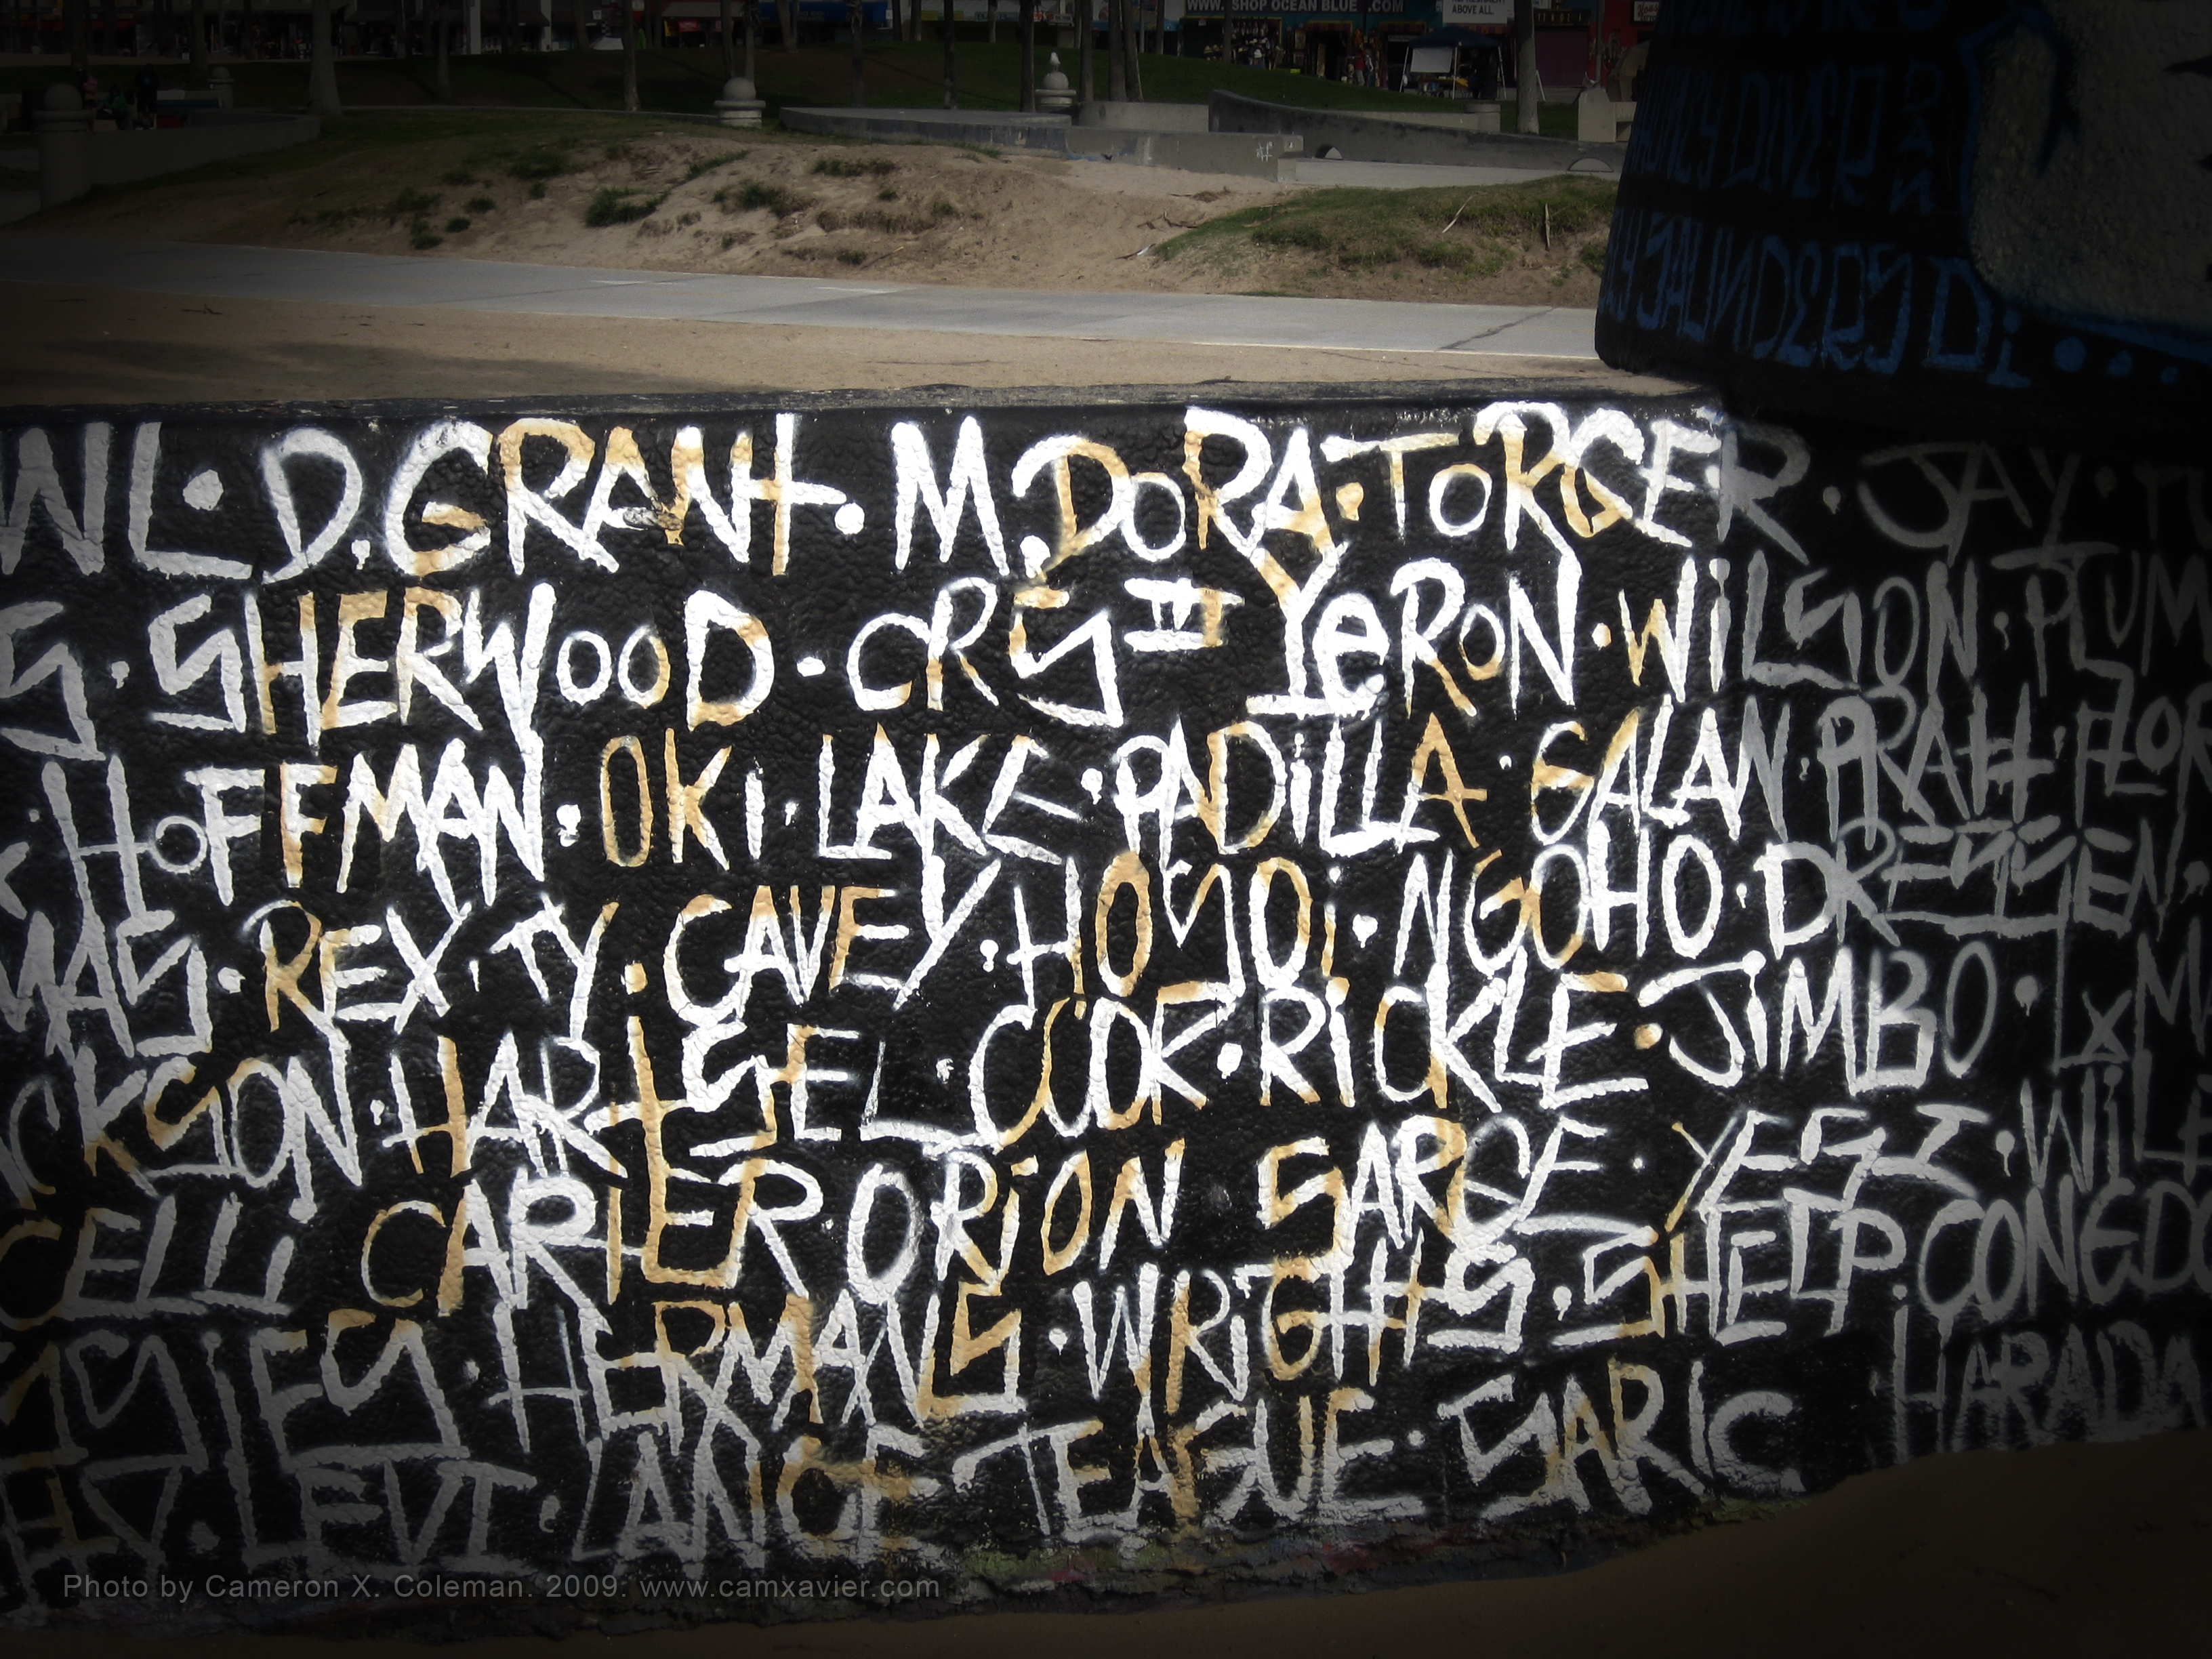 WWW. SHOP OCEAN BLUE .COM
ABOVE ALL.
DIVER
SAUNDERS Di...
WL · D. GRANT · M. DORA · TORGER · JAY ·
S · SHERWOOD · CRS II YERON · WILSON ·
· HOFFMAN · OKi · LAKE · PADiLLA · GALAN · PRATT ·
MAS · REX · TY · CAVEY · HOSOi · NGOHO · DRESSEN,
CKSON · HARTSEL · COOK · RiCKLE · JiMBO ·
CELLi CARTER ORiON SARGE · YESI ·
HERMANS · WRiGHTS · SHELP · CONEDO
LEVI · LANCE TEAGUE · SARIC HARADA
Photo by Cameron X. Coleman. 2009. www.camxavier.com